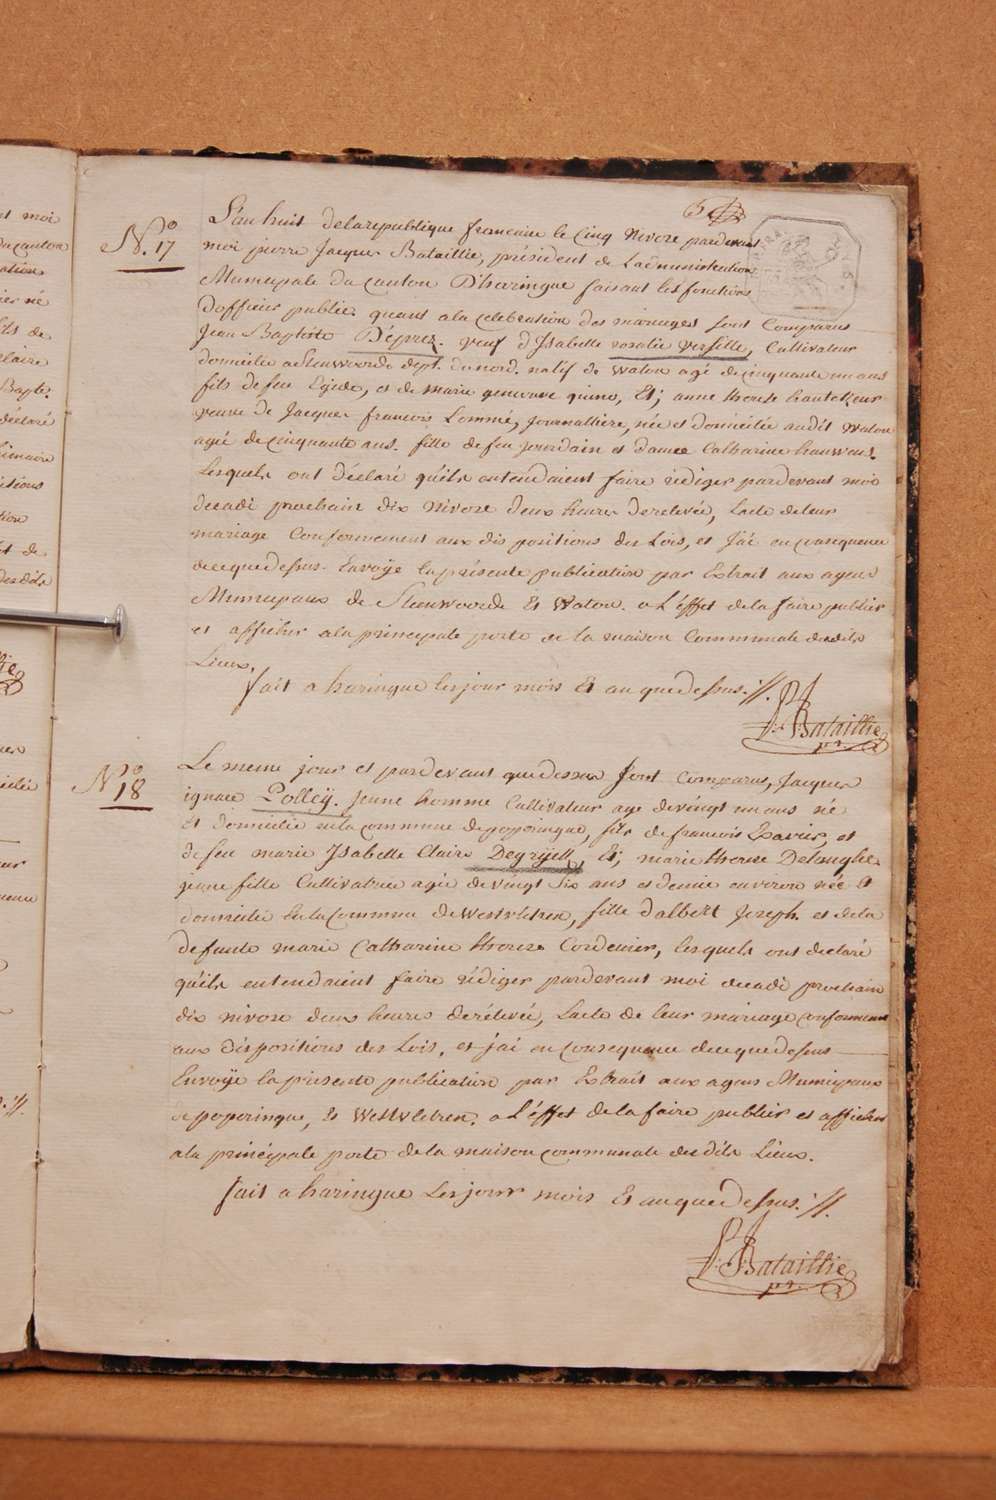 N.° 17
L'an huit de la republique francaise le cinq Nivose pardevant
moi pierre Jacques Bataillie, président de Ladministration
Municipale du canton D'haringue faisant les fonctions
Dofficier publie, quant a la celebration des mariages sont Comparus
Jean Baptiste Déprez. veuf d'Isabelle rosalie versille, Cultivateur
domicilie a Steenwoorde dept. du nord. natif de waton agé de cinquante un ans
fils de feu Egide, et de marie genevieve quino, Et; anne therese
veuve de Jacques francois Lommé, Journalliere, née et domiciliée audit Waton
agée de cinquante ans. fille de feu jourdain et d'anne Catharine hauwens.
Lesquels ont déclaré qu'ils entendaient faire rédiger pardevant moi
decadi prochain dix Nivose deux heures de relevée, Lacte de leur
mariage Conformement aux dispositions des Lois, et j'ai en consequence
de ce que dessus. Envoÿe la présente publication par Extrait aux agens
Municipaux de Steenwoorde Et Waton. a L'éffet de la faire publier
et afficher a la principale porte de la maison Communale desdits
Lieux,
fait a haringue les jour mois Et an que dessus. //.
P: J: Bataillie
pr.
N.° 18
Le meme jour et pardevant que dessus sont Comparus, Jacques
ignace Polleÿ. jeune homme Cultivateur age de vingt un ans né
Et domicilie en la commune de poperingue, fils de francois Xavier, et
de feu marie Isabelle Claire Degrÿell, Et; marie therese Delanghe
jeune fille Cultivatrice agée de vingt Six ans et demie environ née et
domicilié en la Commune de Westvleteren, fille d'albert Joseph. et de la
defunte marie Catharine therese Cordenier, lesquels ont declaré
qu'ils entendaient faire rédiger pardevant moi decadi prochain
dix nivose deux heures de relévée, Lacte de leur mariage conformement
aux dispositions des Lois, et j'ai en consequence de ce que dessus
Envoÿe la présente publication par Extrait aux agens Municipaux
de poperingue, Et Westvleteren. a L'éffet de la faire publier et afficher
a la principale porte de la maison communale des dits Lieux.
fait a haringue les jour mois Et an que dessus. //.
P: J: Bataillie
pr.